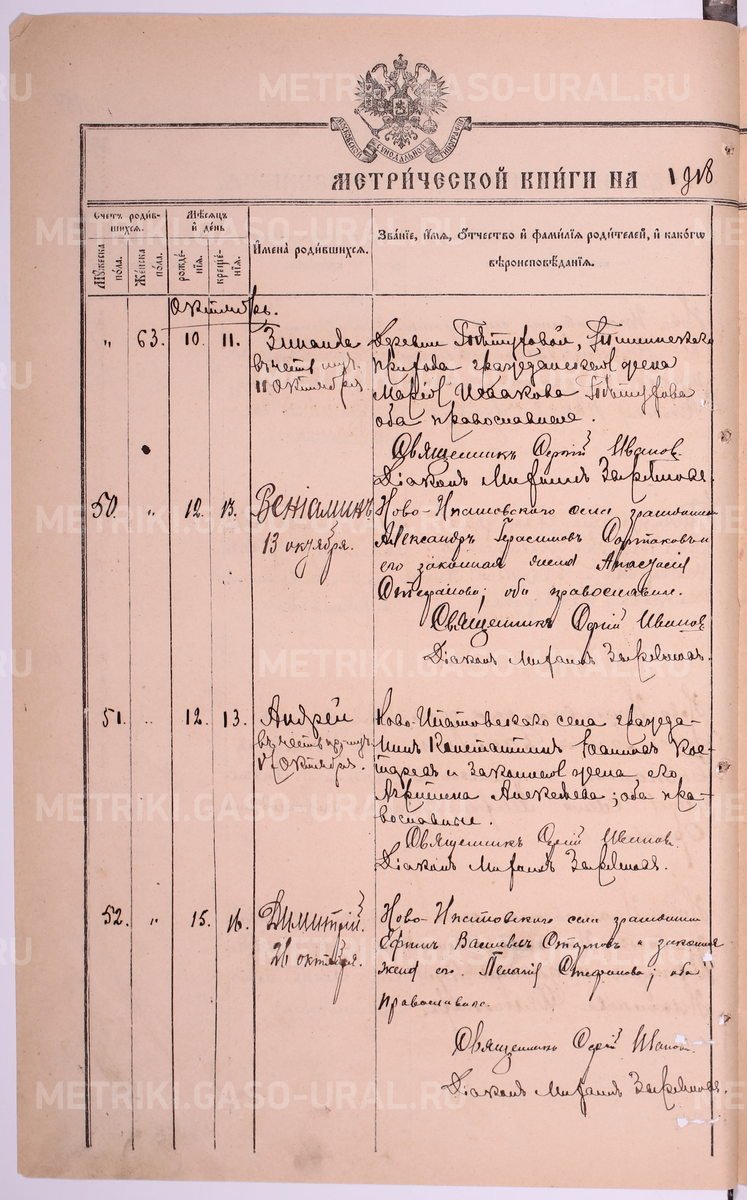 METRIKI.GASO-URAL.RU
МОСКОВСКОЙ СѴНОДАЛЬНОЙ ТИПОГРАФІИ
МЕТРИ́ЧЕСКОЙ КНИ́ГИ НА 1918
Счетъ роди́в-
шихся.
Му́жеска
по́ла.
Же́нска
по́ла.
Мѣ́сяцъ
и҆ де́нь
рожде́-
нїѧ.
креще́-
нїѧ.
И҆мена̀ роди́вшихся.
Зва́нїе, и҆́мѧ, ѻ҆́тчество и҆ фами́лїѧ роди́телей, и҆ како́гѡ
вѣроисповѣ́данїѧ.
Октябрь.
" 63. 10. 11. Зинаида
въ честь муч.
11 Октября.
Деревни
прихода гражданская жена
Марія
оба православные.
Священникъ Сергій Ивановъ.
Діаконъ
50. " 12. 13. Веніаминъ
13 октября.
Ново-Ипатовского села гражданинъ
Александръ Герасимовъ
его законная жена Анастасія
Стефанова; оба православные.
Священникъ Сергій Ивановъ.
Діаконъ
51. " 12. 13. Андрей
въ честь
Октября.
Ново-Ипатовскаго села гражда-
нинъ Константинъ Іоанновъ Кос-
и законная жена его
Агрипина Алексѣева; оба пра-
вославные.
Священникъ Сергій Ивановъ.
Діаконъ
52. " 15. 16. Димитрій.
26 октября.
Ново-Ипатовского села гражданинъ
Ефимъ Васильевъ и законная
жена его Пелагія Стефанова; оба
православные.
Священникъ Сергій Ивановъ.
Діаконъ